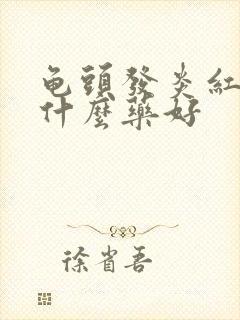 龟頭發炎紅
什麼藥好
徐省吾